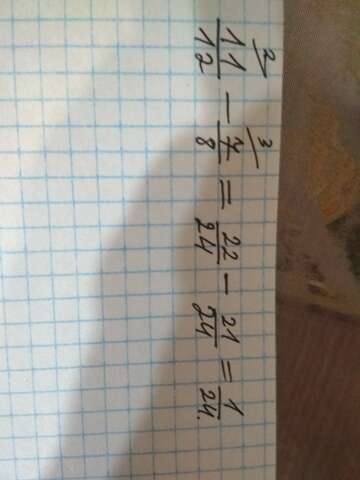 11/12 ² - 7/8 ³ = 22/24 - 21/24 = 1/24.